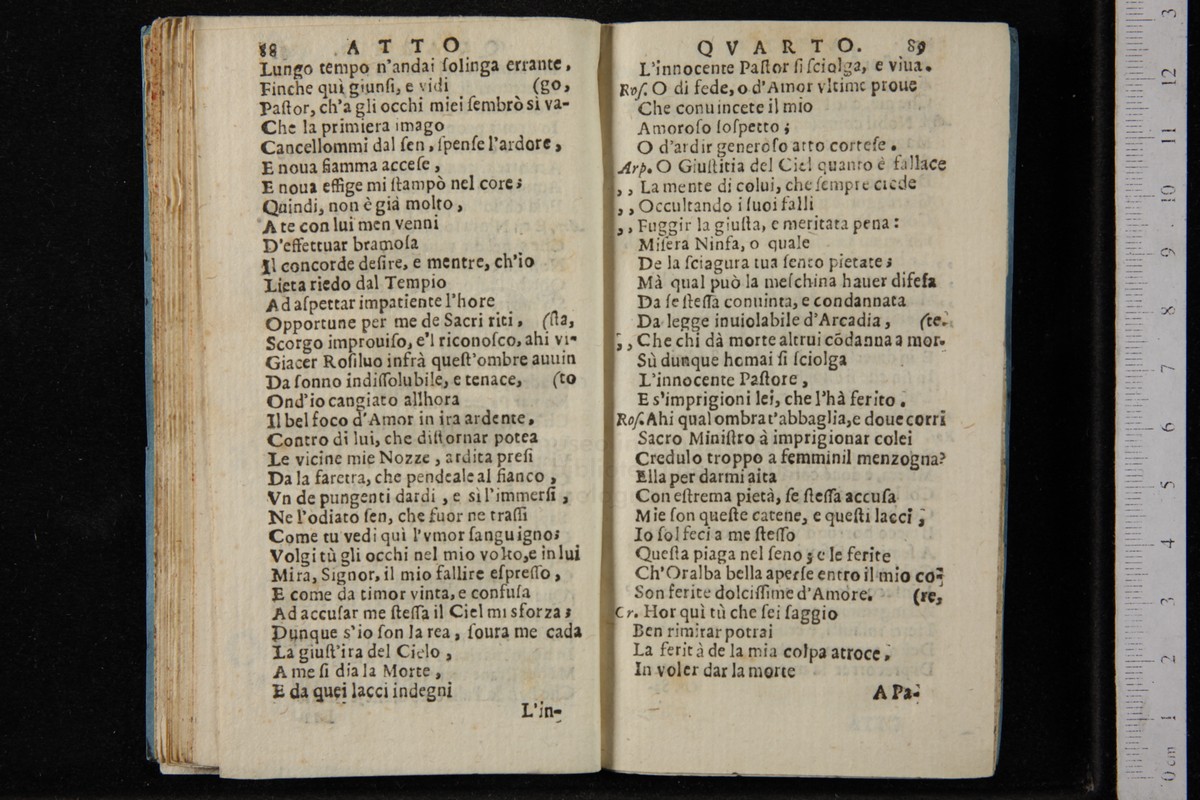 88 ATTO
Lungo tempo n'andai ſolinga errante,
Finche quì giunſi, e vidi (go,
Paſtor, ch'a gli occhi miei ſembrò sì va-
Che la primiera imago
Cancellommi dal ſen, ſpenſe l'ardore,
E noua fiamma acceſe,
E noua effige mi ſtampò nel core;
Quindi, non è già molto,
A te con lui men venni
D'effettuar bramoſa
Il concorde deſire, e mentre, ch'io
Lieta riedo dal Tempio
Ad aſpettar impatiente l'hore
Opportune per me de Sacri riti, (ſta,
Scorgo improuiſo, e'l riconoſco, ahi vi-
Giacer Roſiluo infrà queſt'ombre auuin
Da ſonno indiſſolubile, e tenace, (to
Ond'io cangiato allhora
Il bel foco d'Amor in ira ardente,
Contro di lui, che diſtornar potea
Le vicine mie Nozze, ardita preſi
Da la faretra, che pendeale al fianco,
Vn de pungenti dardi, e sì l'immerſi,
Ne l'odiato ſen, che fuor ne traſſi
Come tu vedi quì l'vmor ſanguigno;
Volgi tù gli occhi nel mio volto, e in lui
Mira, Signor, il mio fallire eſpreſſo,
E come da timor vinta, e confuſa
Ad accuſar me ſteſſa il Ciel mi sforza;
Dunque s'io ſon la rea, ſoura me cada
La giuſt'ira del Cielo,
A me ſi dia la Morte,
E da quei lacci indegni
L'in-
QVARTO. 89
L'innocente Paſtor ſi ſciolga, e viua.
Roſ. O di fede, o d'Amor vltime proue
Che conuincete il mio
Amoroſo ſoſpetto;
O d'ardir generoſo atto corteſe.
Arp. O Giuſtitia del Ciel quanto è fallace
,, La mente di colui, che ſempre crede
,, Occultando i ſuoi falli
,, Fuggir la giuſta, e meritata pena:
Miſera Ninfa, o quale
De la ſciagura tua ſento pietate;
Mà qual può la meſchina hauer difeſa
Da ſe ſteſſa conuinta, e condannata
Da legge inuiolabile d'Arcadia, (te.
,, Che chi dà morte altrui cōdanna a mor-
Sù dunque homai ſi ſciolga
L'innocente Paſtore,
E s'imprigioni lei, che l'hà ferito.
Roſ. Ahi qual ombra t'abbaglia, e doue corri
Sacro Miniſtro à imprigionar colei
Credulo troppo a femminil menzogna?
Ella per darmi aita
Con eſtrema pietà, ſe ſteſſa accuſa
Mie ſon queſte catene, e queſti lacci,
Io ſol feci a me ſteſſo
Queſta piaga nel ſeno; e le ferite
Ch'Oralba bella aperſe entro il mio co-
Son ferite dolciſſime d'Amore. (re,
Cr. Hor quì tù che ſei ſaggio
Ben rimirar potrai
La ferità de la mia colpa atroce,
In voler dar la morte
A Pa-